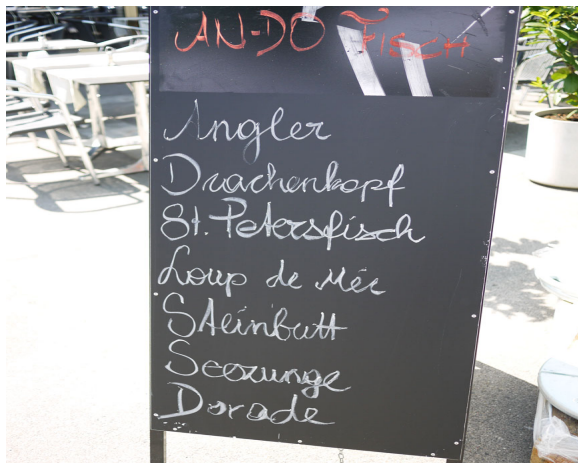 AN-DO FISCH
Angler
Drachenkopf
St. Petersfisch
Loup de Mér
Steinbutt
Seezunge
Dorade